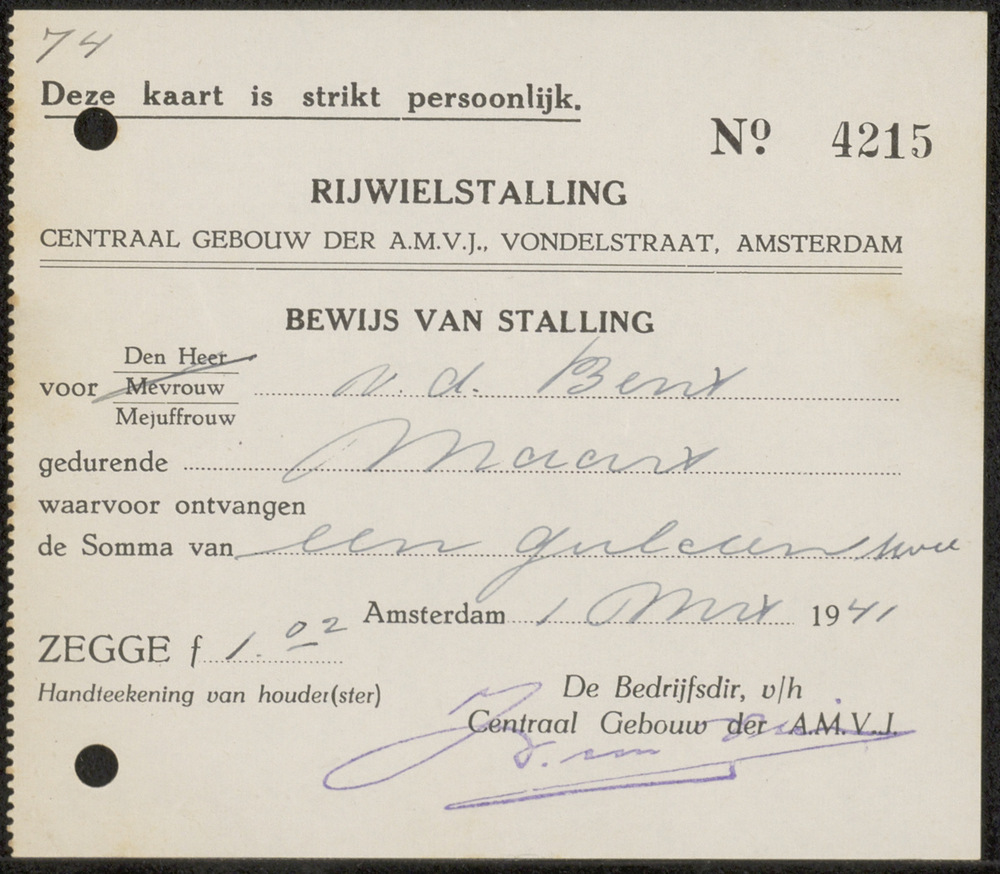 74
Deze kaart is strikt persoonlijk.
Nº 4215
RIJWIELSTALLING
CENTRAAL GEBOUW DER A.M.V.J., VONDELSTRAAT, AMSTERDAM
BEWIJS VAN STALLING
Den Heer
voor Mevrouw v. d. Bent
Mejuffrouw
gedurende Maart
waarvoor ontvangen
de Somma van een gulden twee
Amsterdam 1 Mrt 1941
ZEGGE f 1.02
Handteekening van houder(ster)
De Bedrijfsdir, v/h
Centraal Gebouw der A.M.V.J.